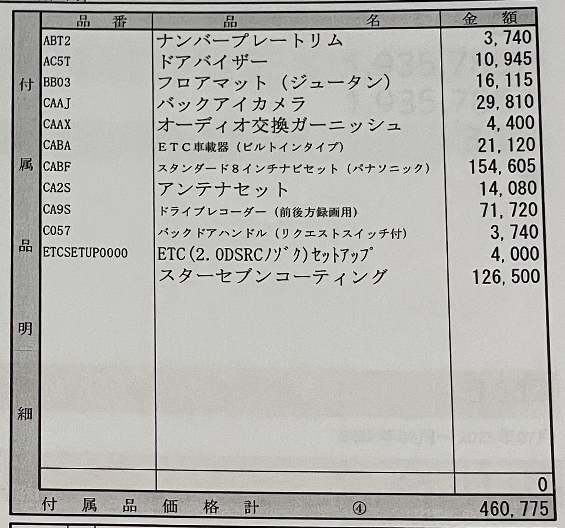 品番 品名 金額
ABT2 ナンバープレートリム 3,740
AC5T ドアバイザー 10,945
BB03 フロアマット(ジュータン) 16,115
CAAJ バックアイカメラ 29,810
CAAX オーディオ交換ガーニッシュ 4,400
CABA ETC車載器(ビルトインタイプ) 21,120
CABF スタンダード8インチナビセット(パナソニック) 154,605
CA2S アンテナセット 14,080
CA9S ドライブレコーダー(前後方録画用) 71,720
C057 バックドアハンドル(リクエストスイッチ付) 3,740
ETCSETUP0000 ETC(2.0DSRCノゾク)セットアップ 4,000
スターセブンコーティング 126,500
付属品明細
0
付属品価格計 ④ 460,775